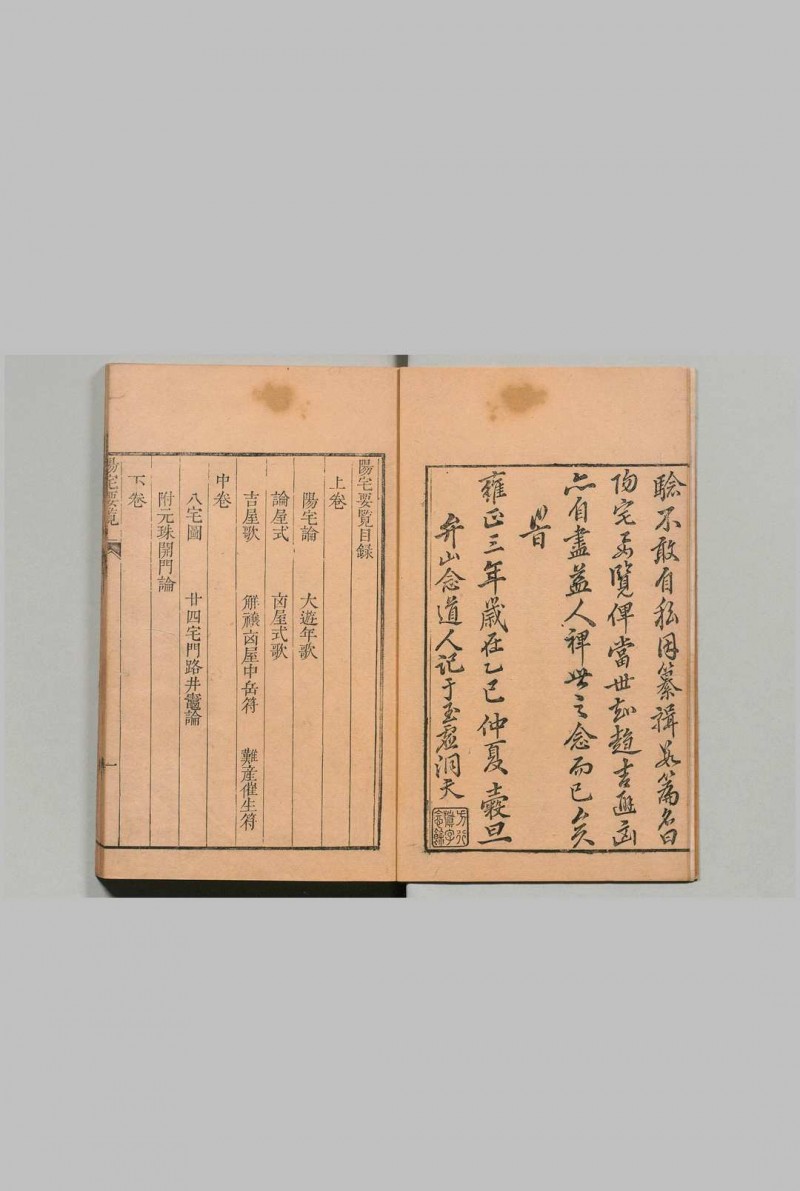 驗不敢自私因纂輯是篇名曰
陽宅要覽俾當世知趨吉避凶
亦自盡益人裨世之念而已矣
時
雍正三年歲在乙巳仲夏穀旦
弁山念道人記于玉虛洞天
陽宅要覽目録
上卷
陽宅論 大遊年歌
論屋式 凶屋式歌
吉屋歌 解禳凶屋中岳符 難産催生符
中卷
八宅圖 廿四宅門路井竈論
附元珠開門論
下卷
陽宅要覽 一